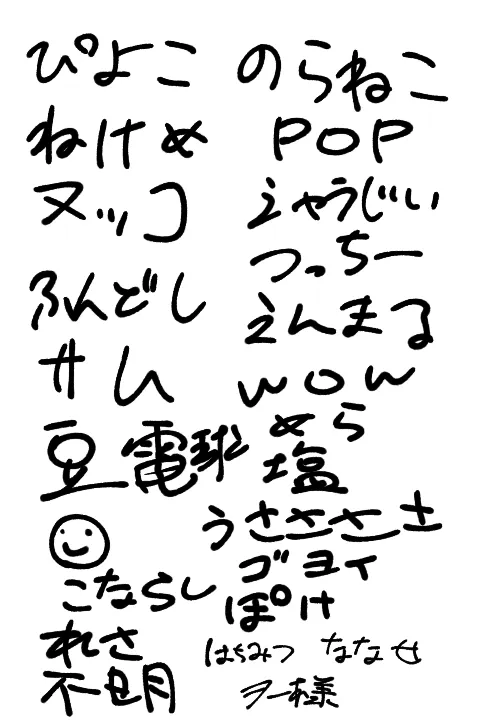 ぴよこ
のらねこ
ねけめ
POP
ヌッコ
えゃうじい
つっちー
ふんどし
えんまる
サム
wow
めら
豆電球
塩
うささささ
ゴヨイ
こならし
ぽけ
れさ
はちみつ
ななせ
不明
ヲー様